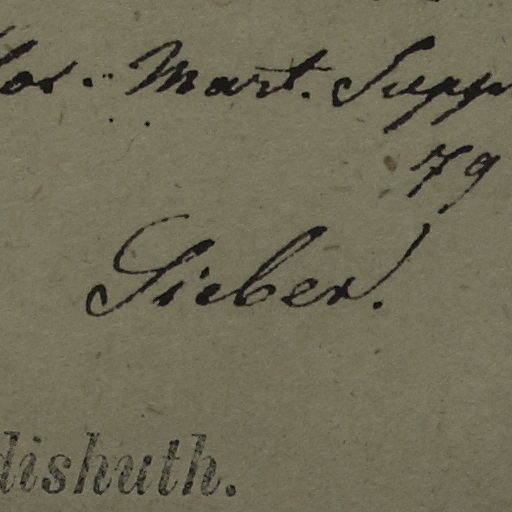 los. Mart. Supp
79
Sieber.
dishuth.